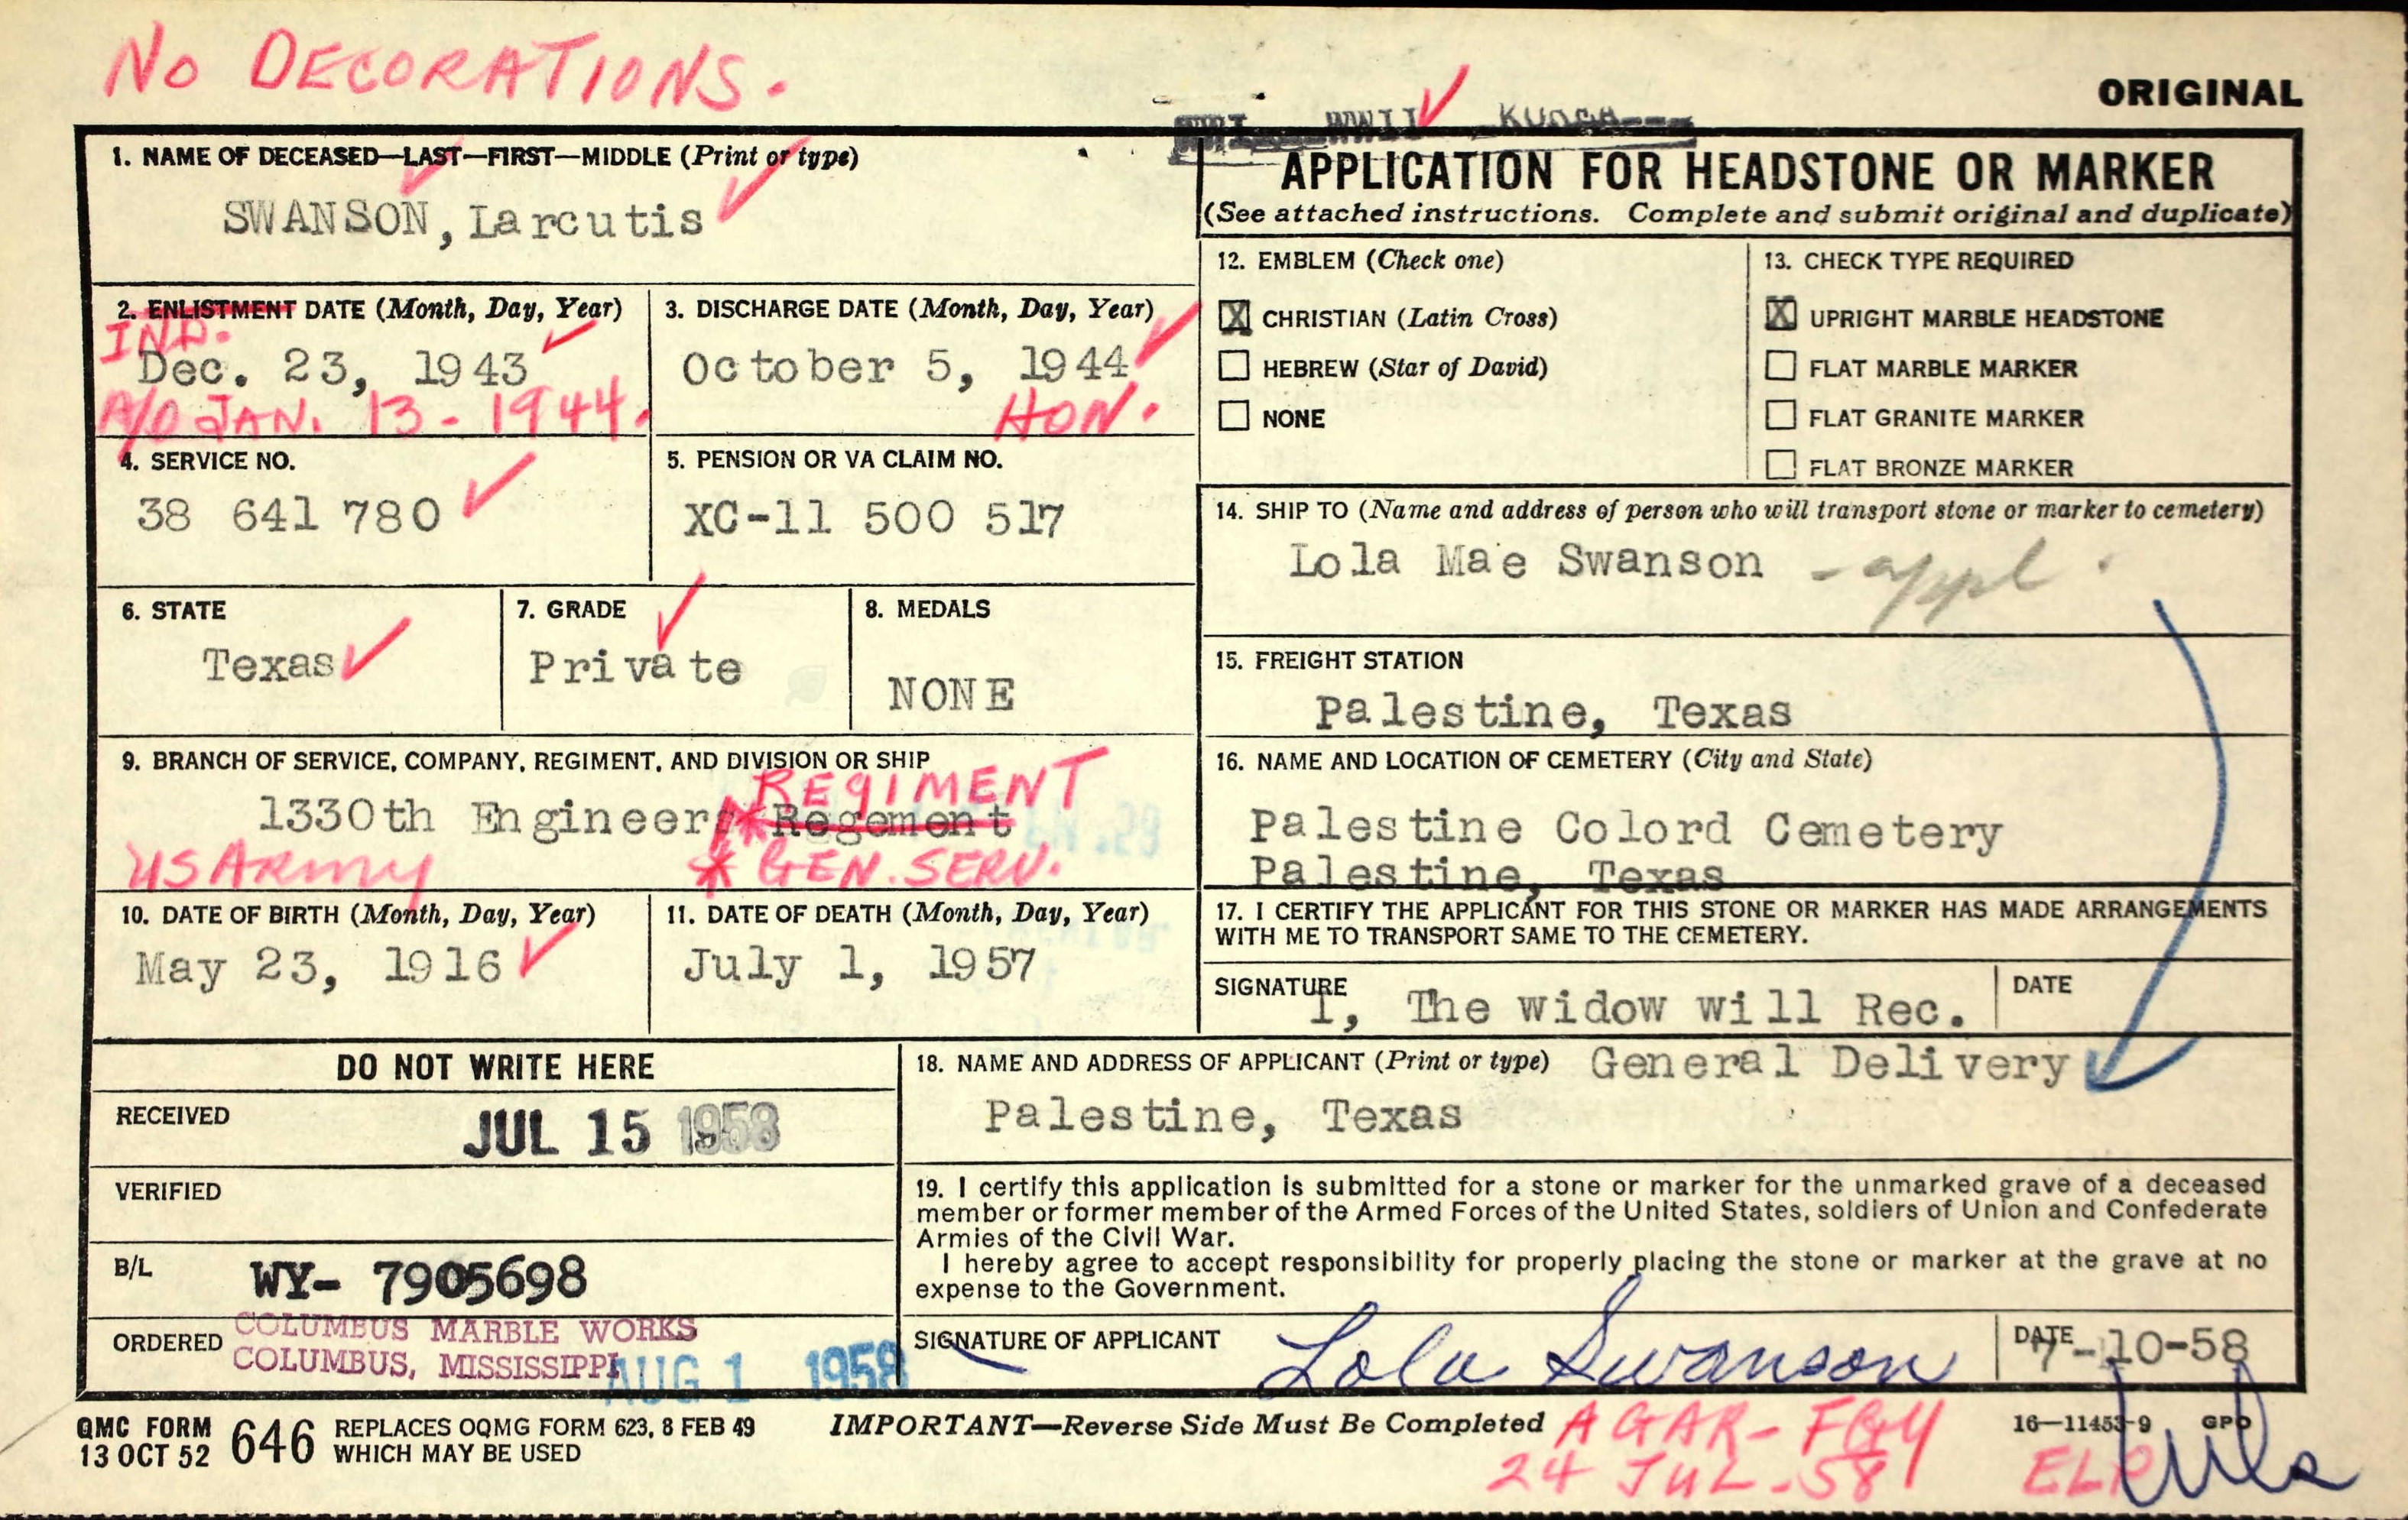 No DECORATIONS.
ORIGINAL
WWI WWII KOREA
1. NAME OF DECEASED—LAST—FIRST—MIDDLE (Print or type)
SWANSON, Larcutis
APPLICATION FOR HEADSTONE OR MARKER
(See attached instructions. Complete and submit original and duplicate)
2. ENLISTMENT DATE (Month, Day, Year)
IND.
Dec. 23, 1943
A/D JAN. 13 - 1944.
3. DISCHARGE DATE (Month, Day, Year)
October 5, 1944
HON.
12. EMBLEM (Check one)
X CHRISTIAN (Latin Cross)
HEBREW (Star of David)
NONE
13. CHECK TYPE REQUIRED
X UPRIGHT MARBLE HEADSTONE
FLAT MARBLE MARKER
FLAT GRANITE MARKER
FLAT BRONZE MARKER
4. SERVICE NO.
38 641 780
5. PENSION OR VA CLAIM NO.
XC-11 500 517
14. SHIP TO (Name and address of person who will transport stone or marker to cemetery)
Lola Mae Swanson - appl.
6. STATE
Texas
7. GRADE
Private
8. MEDALS
NONE
15. FREIGHT STATION
Palestine, Texas
9. BRANCH OF SERVICE, COMPANY, REGIMENT, AND DIVISION OR SHIP
REGIMENT
1330th Engineers * Regement
US ARMY * GEN. SERV.
16. NAME AND LOCATION OF CEMETERY (City and State)
Palestine Colord Cemetery
Palestine, Texas
10. DATE OF BIRTH (Month, Day, Year)
May 23, 1916
11. DATE OF DEATH (Month, Day, Year)
July 1, 1957
17. I CERTIFY THE APPLICANT FOR THIS STONE OR MARKER HAS MADE ARRANGEMENTS
WITH ME TO TRANSPORT SAME TO THE CEMETERY.
SIGNATURE
I, The widow will Rec.
DATE
DO NOT WRITE HERE
RECEIVED JUL 15 1958
VERIFIED
B/L WY- 7905698
ORDERED COLUMBUS MARBLE WORKS
COLUMBUS, MISSISSIPPI
AUG 1 1958
18. NAME AND ADDRESS OF APPLICANT (Print or type) General Delivery
Palestine, Texas
19. I certify this application is submitted for a stone or marker for the unmarked grave of a deceased
member or former member of the Armed Forces of the United States, soldiers of Union and Confederate
Armies of the Civil War.
I hereby agree to accept responsibility for properly placing the stone or marker at the grave at no
expense to the Government.
SIGNATURE OF APPLICANT Lola Swanson
DATE 7-10-58
QMC FORM 646
13 OCT 52
REPLACES OQMG FORM 623, 8 FEB 49
WHICH MAY BE USED
IMPORTANT—Reverse Side Must Be Completed
AGAR-FGY
24 JUL-58
16—11453-9 GPO